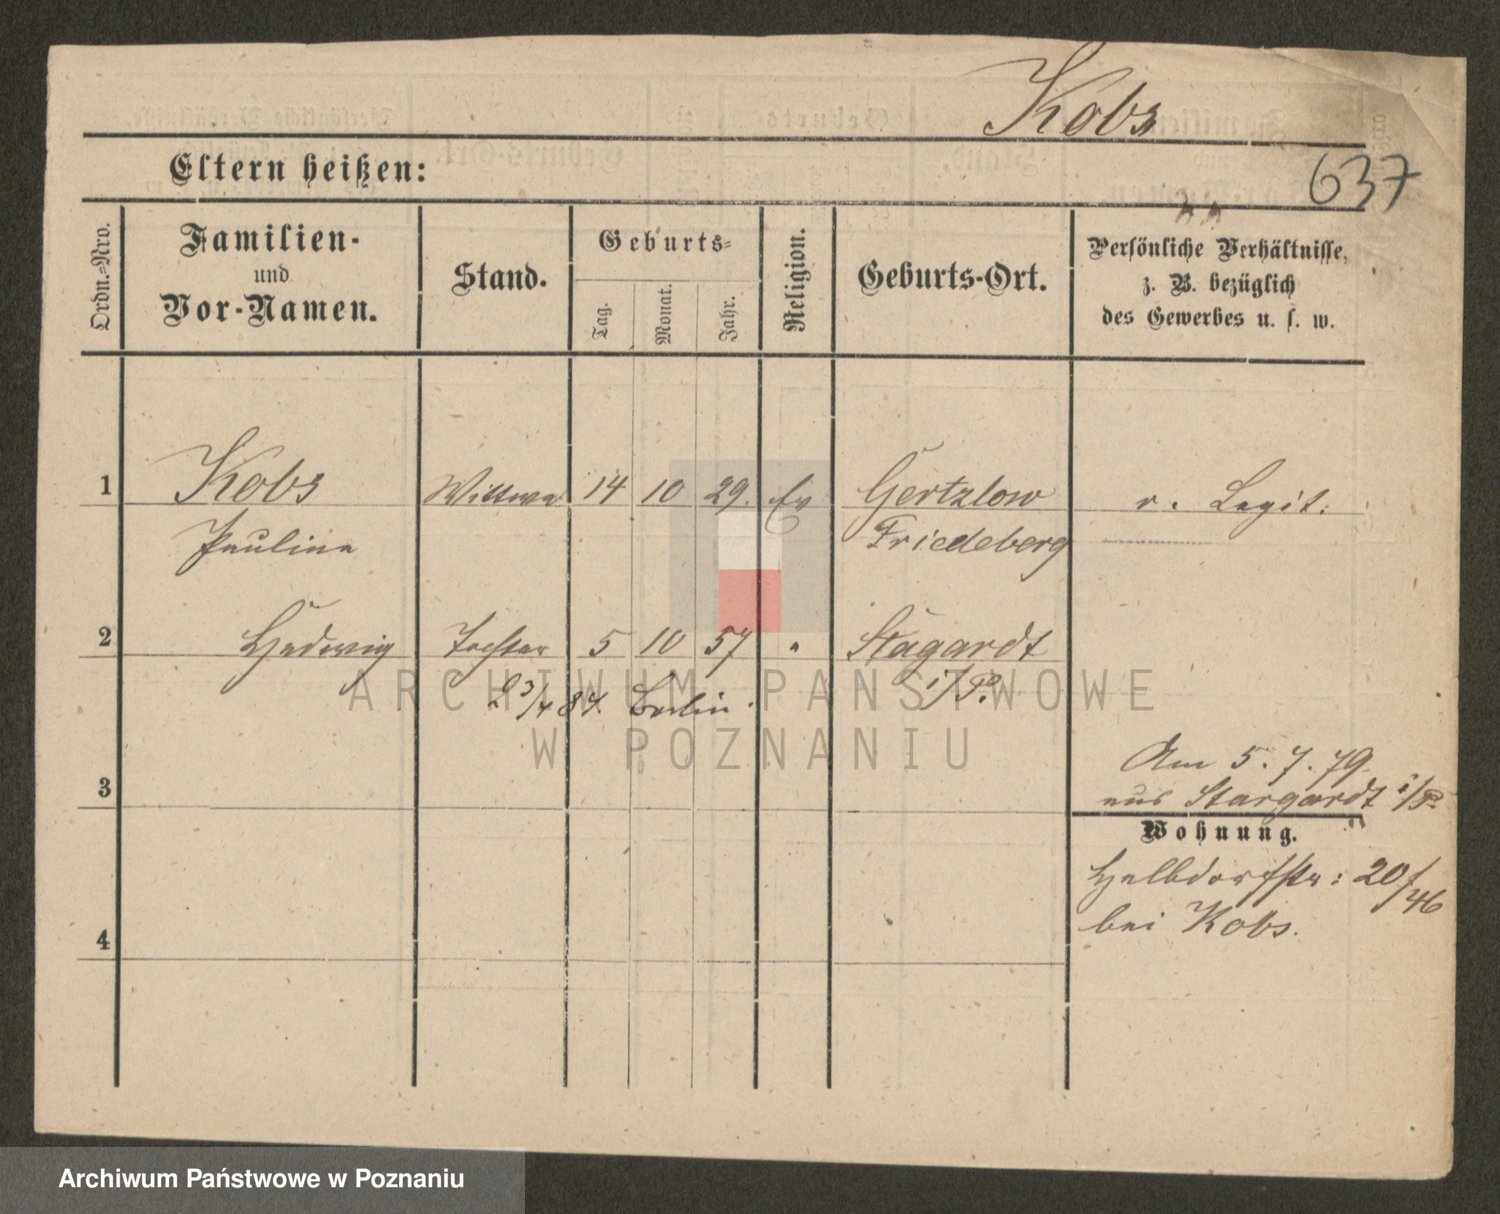 Kobs
637
Eltern heißen:
Ordn.-Nro.
Familien-
und
Vor-Namen.
Stand.
Geburts-
Tag.
Monat.
Jahr.
Religion.
Geburts-Ort.
Persönliche Verhältnisse,
z. B. bezüglich
des Gewerbes u. s. w.
1 Kobs Wittwe 14 10 29. Ev Gertzlow r. Legit.
Pauline Friedeberg
2 Hedwig Tochter 5 10 57 " Stagardt
i/P.
87. Berlin.
ARCHIWUM PAŃSTWOWE
W POZNANIU
Am 5. 7. 79.
3 aus Stargardt i/P.
Wohnung.
Halbdorfstr: 20/46
bei Kobs.
4
Archiwum Państwowe w Poznaniu